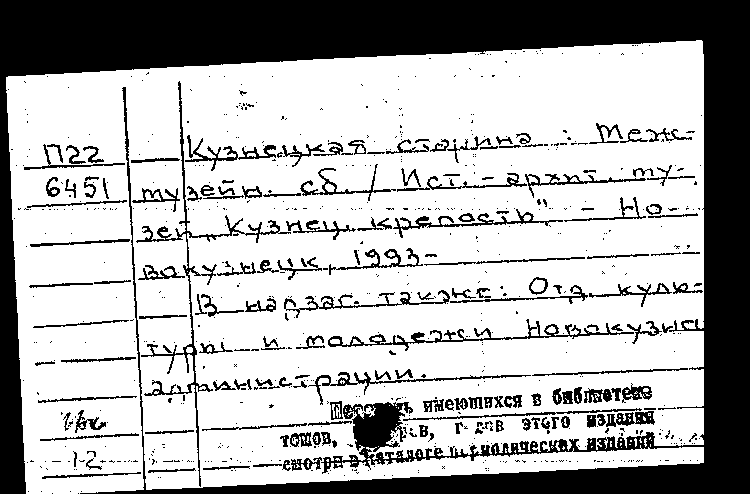 П22
6451
Кузнецкая старина : Меж-
музейн. сб. / Ист.-архит. му-
зей „Кузнец. крепость". - Но-
вокузнецк, 1993-
В надзаг. также: Отд. куль-
туры и молодежи Новокузн.
администрации.
имеющихся в библиотеке
томов, этого издания
смотри в каталоге периодических изданий
12